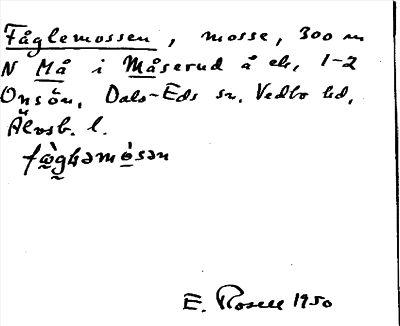 Fåglemossen, mosse, 300 m
N Må i Måserud å ek, 1-2
Onsön, Dals-Eds sn. Vedbo hd,
Älvsb. l.
E. Rosell 1950